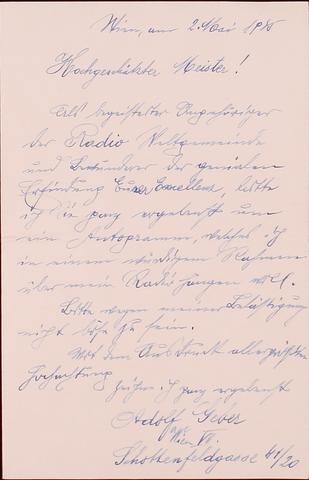 Wien, am 2. Mai 19
Hochgeschätzter Meister!
Als begeisterter Angehöriger
der Radio Weltgemeinde
und Bewunderer der genialen
Erfindung Eurer Excellenz, bitte
ich Sie ganz ergebenst um
ein Autogramm, welches ich
in einem würdigen Rahmen
über mein Radio hangen will.
Bitte wegen meiner Belästigung
nicht böse zu sein.
Mit dem Ausdruck allergrößten
Hochachtung
zeichne ich ganz ergebenst
Adolf
Wien VII.
Schottenfeldgasse 41/20